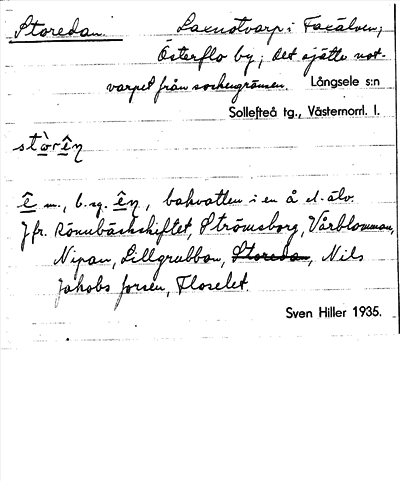 Storedan. Laxnotvarp i Faxälven;
Österflo by; det sjätte not-
varpet från sockengränsen. Långsele s:n
Sollefteå tg., Västernorrl. l.
stòrêŋ
ê m., b.sg. êŋ, bakvatten i en å el. älv.
Jfr. Rönnbäckskiftet, Strömsborg, Vårblomman,
Nipan, Lillgrubban, Storedan, Nils
Jakobs forsen, Floselet.
Sven Hiller 1935.